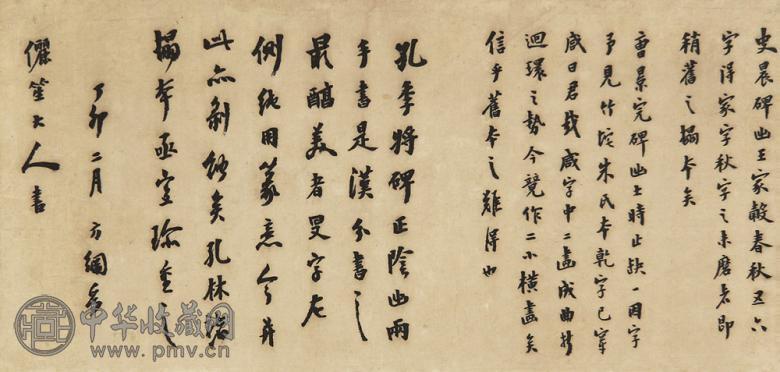 史晨碑出王家瞉春秋五六
字得家字秋字之未磨者即
稍舊之搨本矣
曹景完碑出土時止缺一因字
予見竹垞朱氏本乾字已穿
咸曰君哉咸字中二畫成曲折
迴環之勢今竟作二小橫畫矣
信乎舊本之難得也
孔季將碑正陰出兩
手書是漢分書之
最醇美者旻字左
側純用篆意今并
此亦剝蝕矣孔林舊
搨本亟宜珍重之
丁卯二月 方綱
儷笙大人書
中华收藏网
www.pmv.cn